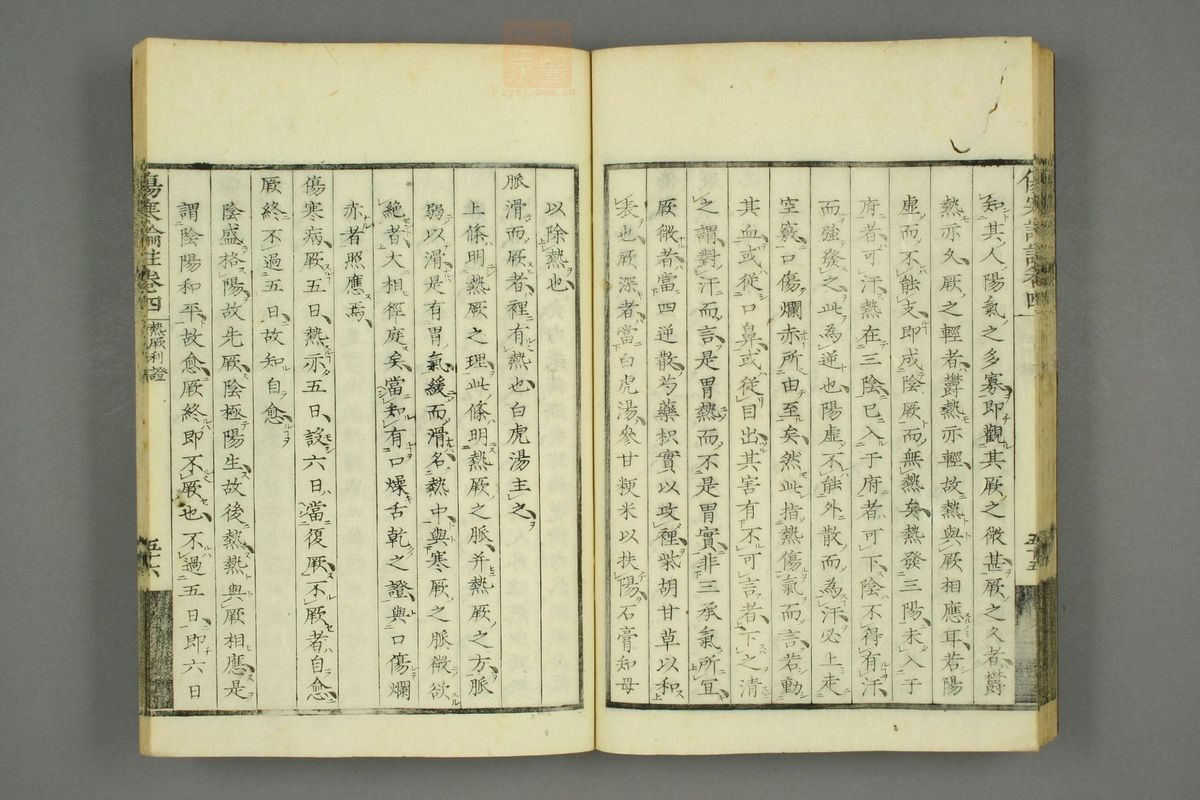 知其人陽氣之多寡即觀其厥之微甚厥之久者欝
熱亦久厥之輕者欝熱亦輕故熱與厥相應耳若陽
虛而不能支即成陰厥而無熱矣熱發三陽未入于
府者可汗熱在三陰已入于府者可下陰不得有汗
而強發之此為逆也陽虛不能外散而為汗必上走
空竅口傷爛赤所由至矣然此指熱傷氣而言若動
其血或從口鼻或從目出其害有不可言者下之清
之謂對汗而言是胃熱而不是胃實非三承氣所宜
厥微者當四逆散芍藥枳實以攻裡柴胡甘草以和
表也厥深者當白虎湯參甘粳米以扶陽石膏知母
以除熱也
脈滑而厥者裡有熱也白虎湯主之
上條明熱厥之理此條明熱厥之脈并熱厥之方脈
弱以滑是有胃氣緩而滑名熱中與寒厥之脈微欲
絕者大相徑庭矣當知有口燥舌乾之證與口傷爛
赤者照應焉
傷寒病厥五日熱亦五日設六日當復厥不厥者自愈
厥終不過五日故知自愈
陰盛格陽故先厥陰極陽生故後熱熱與厥相應是
謂陰陽和平故愈厥終即不厥也不過五日即六日
傷寒論註卷四 熱厥利證 五十六